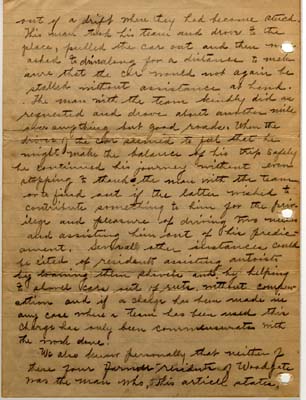 out of a drift where they had become stuck.
This man took his team and drove to the
place, pulled the car out and then was
asked to drive along for a distance to make
sure that the car would not again be
stalled without assistance at hand.
The man with the team kindly did as
requested and drove about another mile
over anything but good roads. When the
driver of the car seemed to feel that he
might make the balance of his trip safely
he continued his journey without even
stopping to thank the man with the team
or find out if the latter wished to
contribute something to him for the priv-
ilege and pleasure of driving two miles
and assisting him out of his predic-
ament. Several other instances could
be cited of residents assisting autoists
by loaning them shovels and by helping
to shovel cars out of ruts without compen-
sation and if a charge has been made in
any case where a team has been used this
charge has only been commensurate with
the work done.
We also know personally that neither of
these four residents of Woodgate
was the man who, this article states,